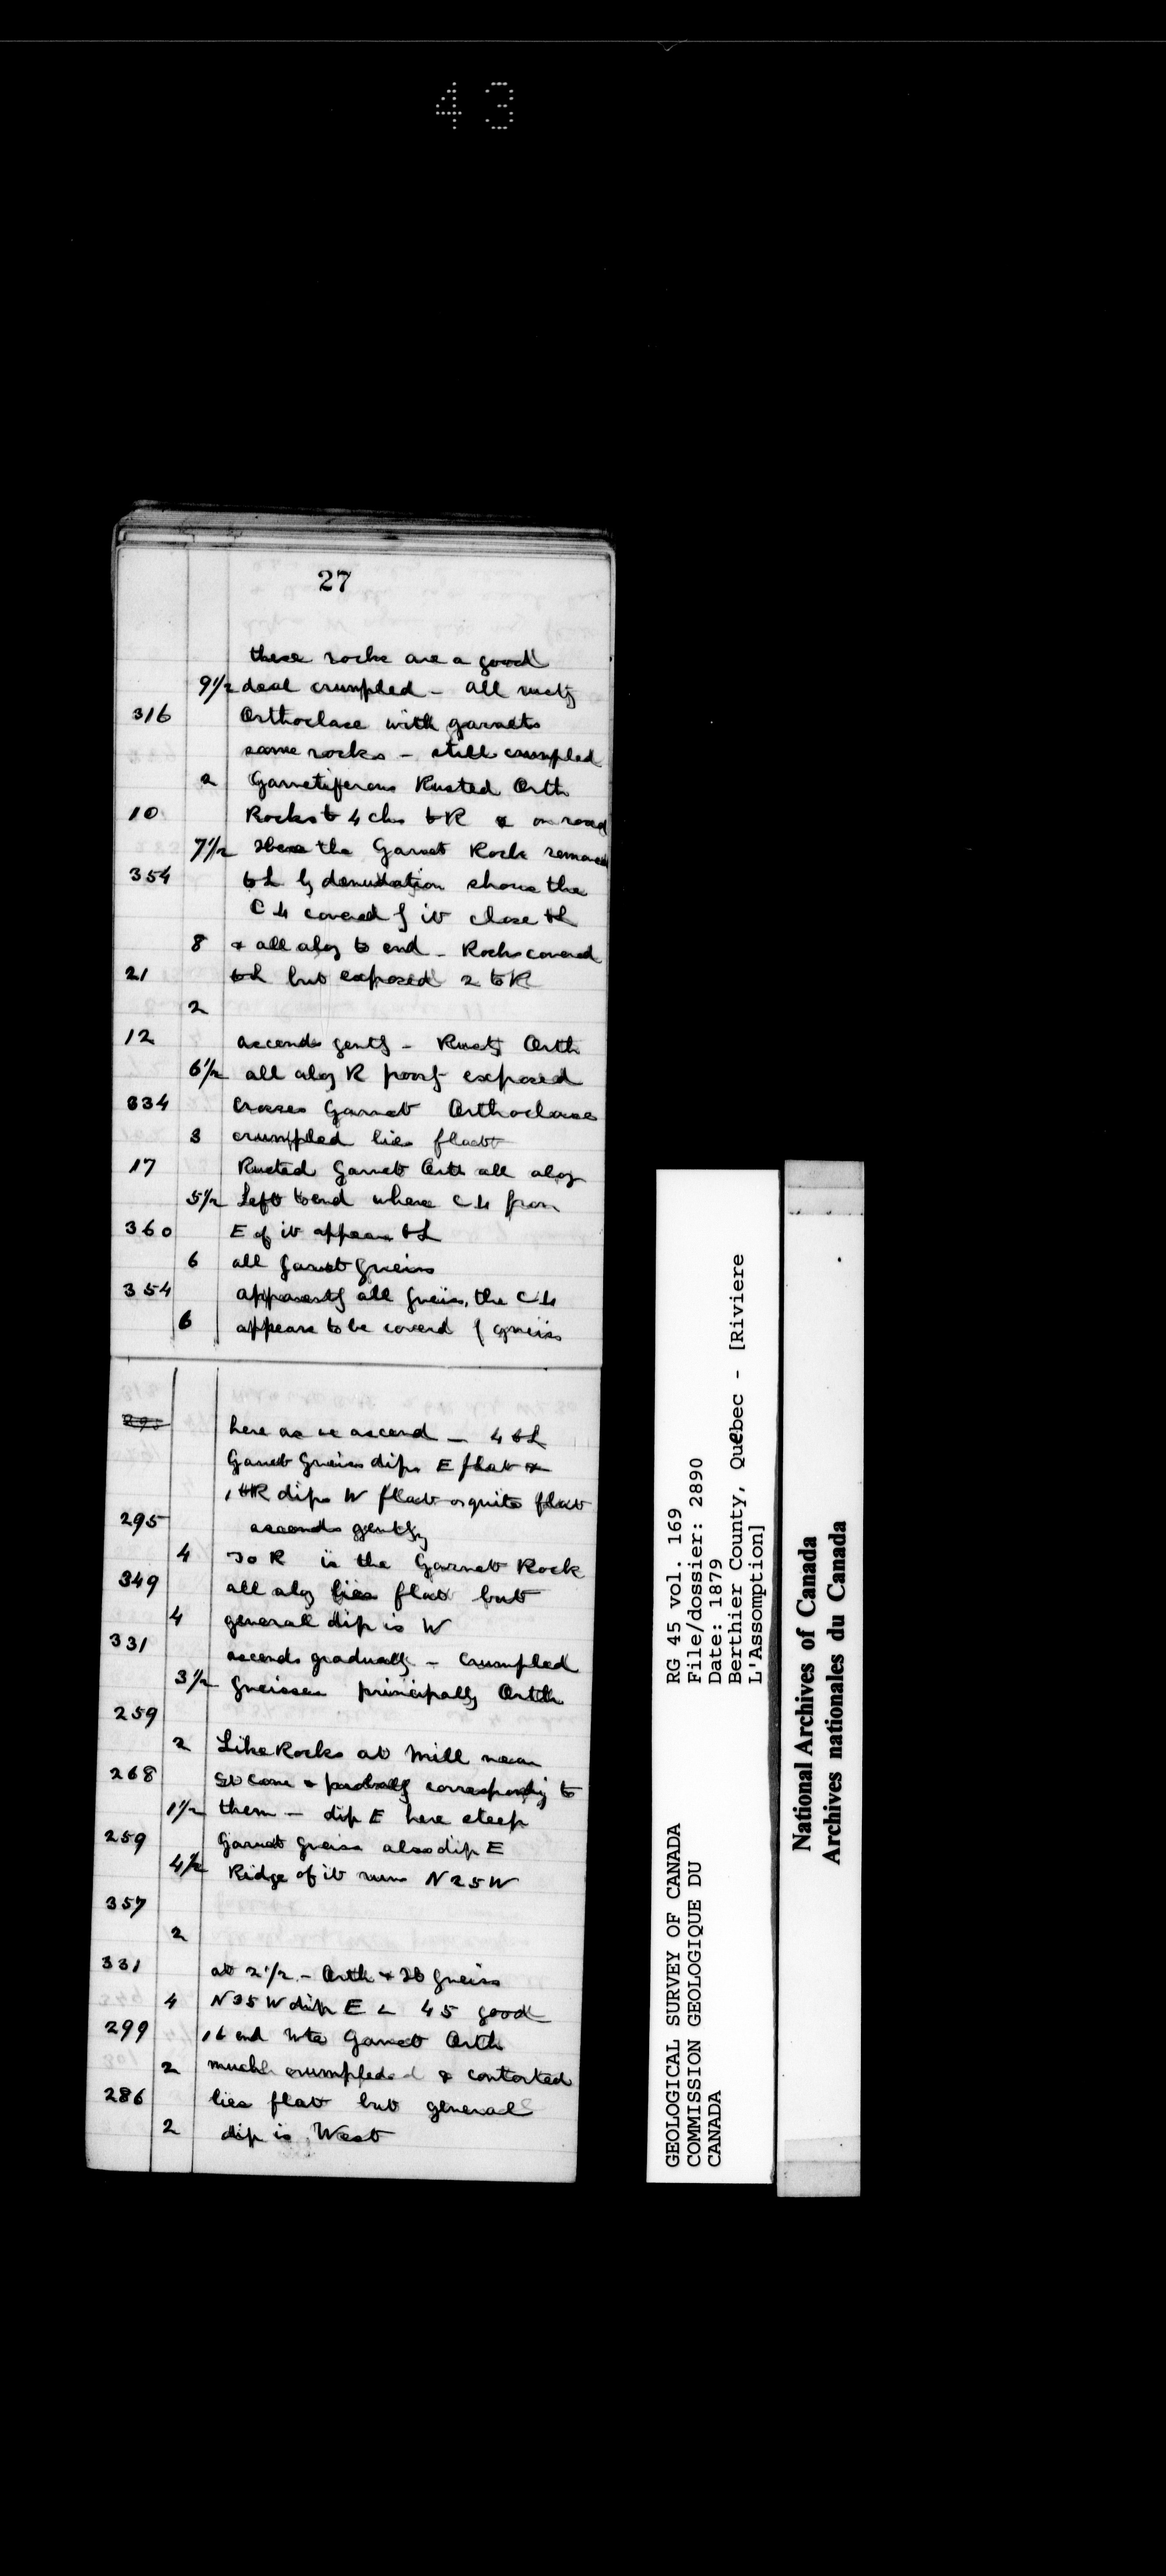 43
27
these rocks are a good
9 1/2 deal crumpled - all rusty
316 Orthoclase with garnets
same rocks - still crumpled
2 Garnetiferous Rusted Orth
10 Rocks to 4 chs to R & on road
7 1/2 Here the Garnet Rock removed
354 to L by denudation shows the
C Li covered by it close to L
8 & all along to end - Rocks covered
21 to L but exposed 2 to R
2
12 ascends gently - Rusty Orth
6 1/2 all along R poorly exposed
334 Crosses Garnet Orthoclase
3 crumpled lies flat
17 Rusted Garnet Orth all along
5 1/2 Left to end where C Li from
360 E of it appears to L
6 all garnet gneiss
354 apparently all gneiss, the C Li
6 appears to be coverd by gneiss
here as we ascend - 4 to L
Garnet Gneiss dips E flat &
1 to R dips W flat or quite flat
295 ascends gently
4 To R is the Garnet Rock
349 all along lies flat but
4 general dip is W
331 ascends gradually - Crumpled
3 1/2 Gneisses principally Orth
259
2 Like Rocks at Mill near
268 St Come & probably corresponding to
1 1/2 them - dip E here steep
259 Garnet Gneiss also dip E
4 1/2 Ridge of it runs N 25 W
357
2
331 at 2 1/2 - Orth & Hb Gneiss
4 N 35 W dip E < 45 good
299 end Garnet Orth
2 much crumpled & contorted
286 lies flat but general
2 dip is West
GEOLOGICAL SURVEY OF CANADA
COMMISSION GEOLOGIQUE DU
CANADA
RG 45 vol. 169
File/dossier: 2890
Date: 1879
Berthier County, Quebec - [Riviere
L'Assomption]
National Archives of Canada
Archives nationales du Canada